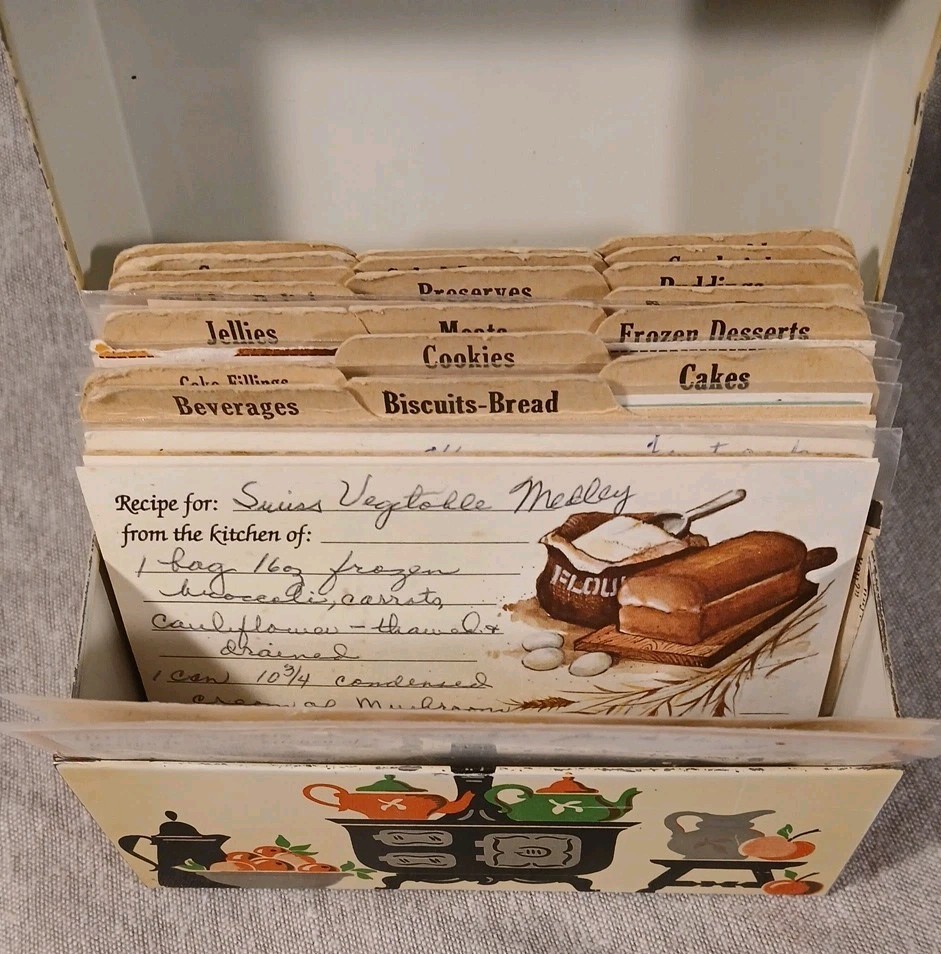 Preserves
Puddings
Jellies
Meats
Frozen Desserts
Cookies
Cake Fillings
Cakes
Beverages
Biscuits-Bread
Recipe for: Swiss Vegetable Medley
from the kitchen of:
1 bag 16oz frozen
broccoli, carrots,
cauliflower - thawed &
drained
1 can 10 3/4 condensed
cream of Mushroom
FLOUR